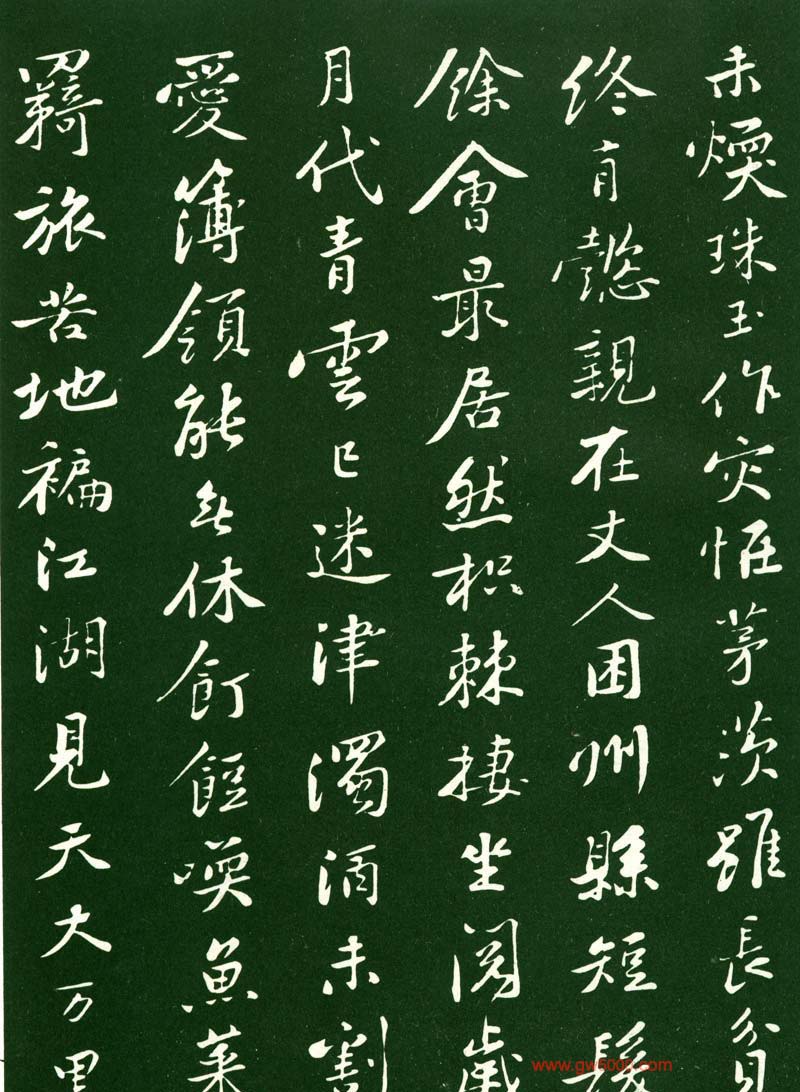 未煗珠玉作灾恠茅茨雖長貧
終有懿親在丈人困州縣短髮
餘會最居然枳棘棲坐閱歲
月代青雲已迷津濁酒未割
愛簿領能無休飣餖喫魚菜
羈旅苦地褊江湖見天大万里
www.gw5005.com